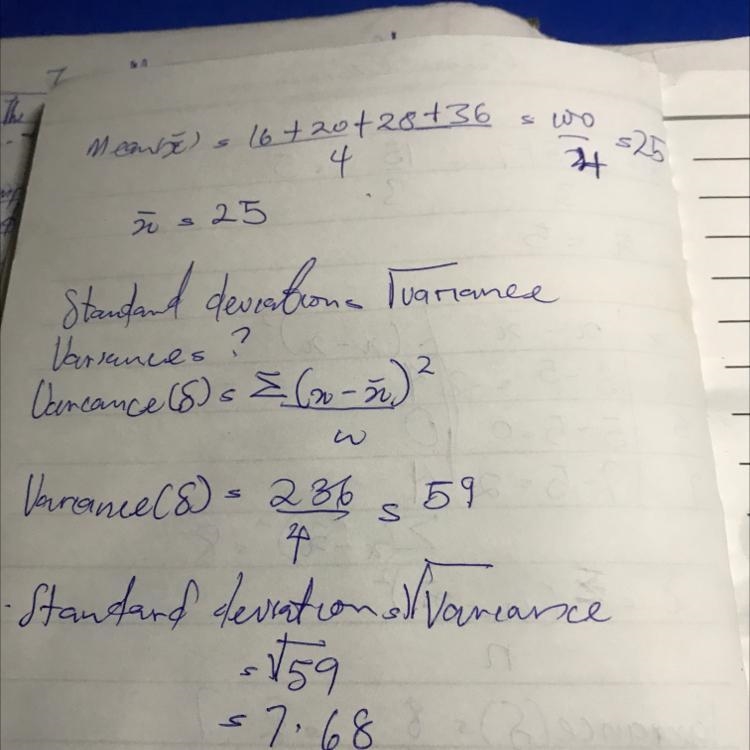 7
The
Mean(x̄) = 16+20+28+36 = 100 = 25
4 4
x̄ = 25
Standard deviation = √variance
Variance = ?
Variance(δ) = Σ(x - x̄)²
n
Variance(δ) = 236 = 59
4
Standard deviation = √Variance
= √59
= 7.68